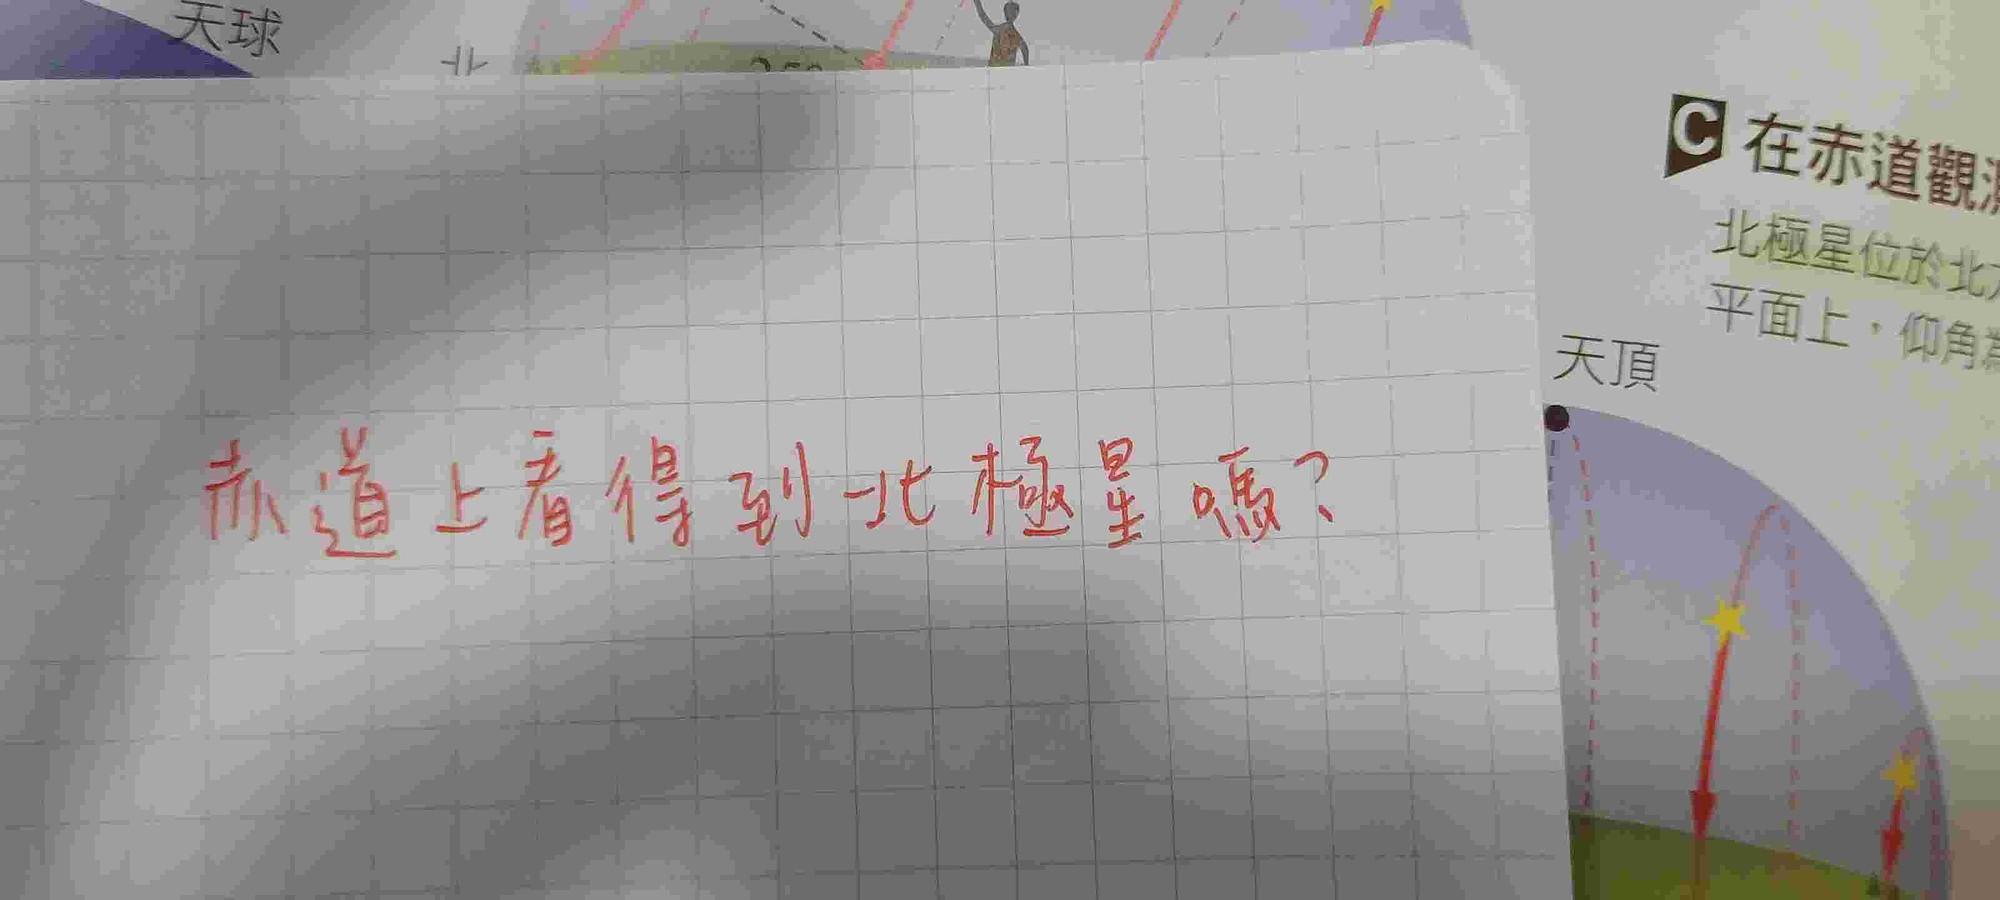 天球
北
25°
C 在赤道觀測
北極星位於北方
平面上，仰角為
天頂
赤道上看得到北極星嗎？